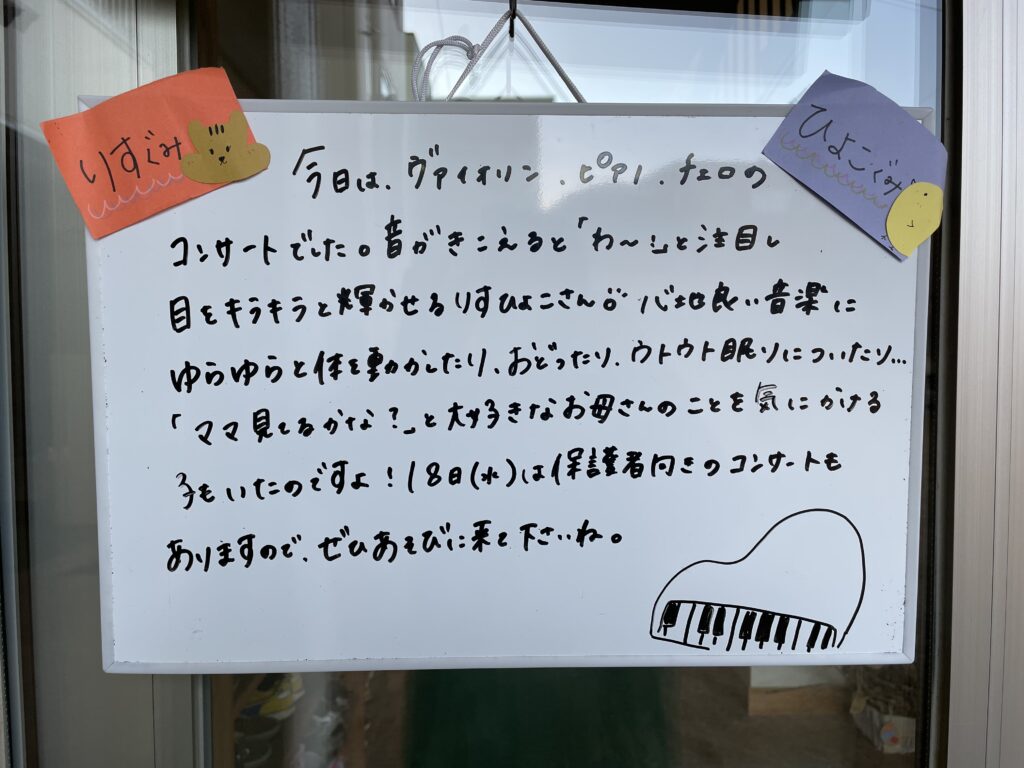 りすぐみ
ひよこぐみ
今日は、ヴァイオリン、ピアノ、チェロの
コンサートでした。音がきこえると「わ～」と注目し
目をキラキラと輝かせるりすひよこさん。心地良い音楽に
ゆらゆらと体を動かしたり、おどったり、ウトウト眠りについたり…
「ママ見てるかな？」と大好きなお母さんのことを気にかける
子もいたのですよ！18日(水)は保護者向きのコンサートも
ありますので、ぜひあそびに来て下さいね。